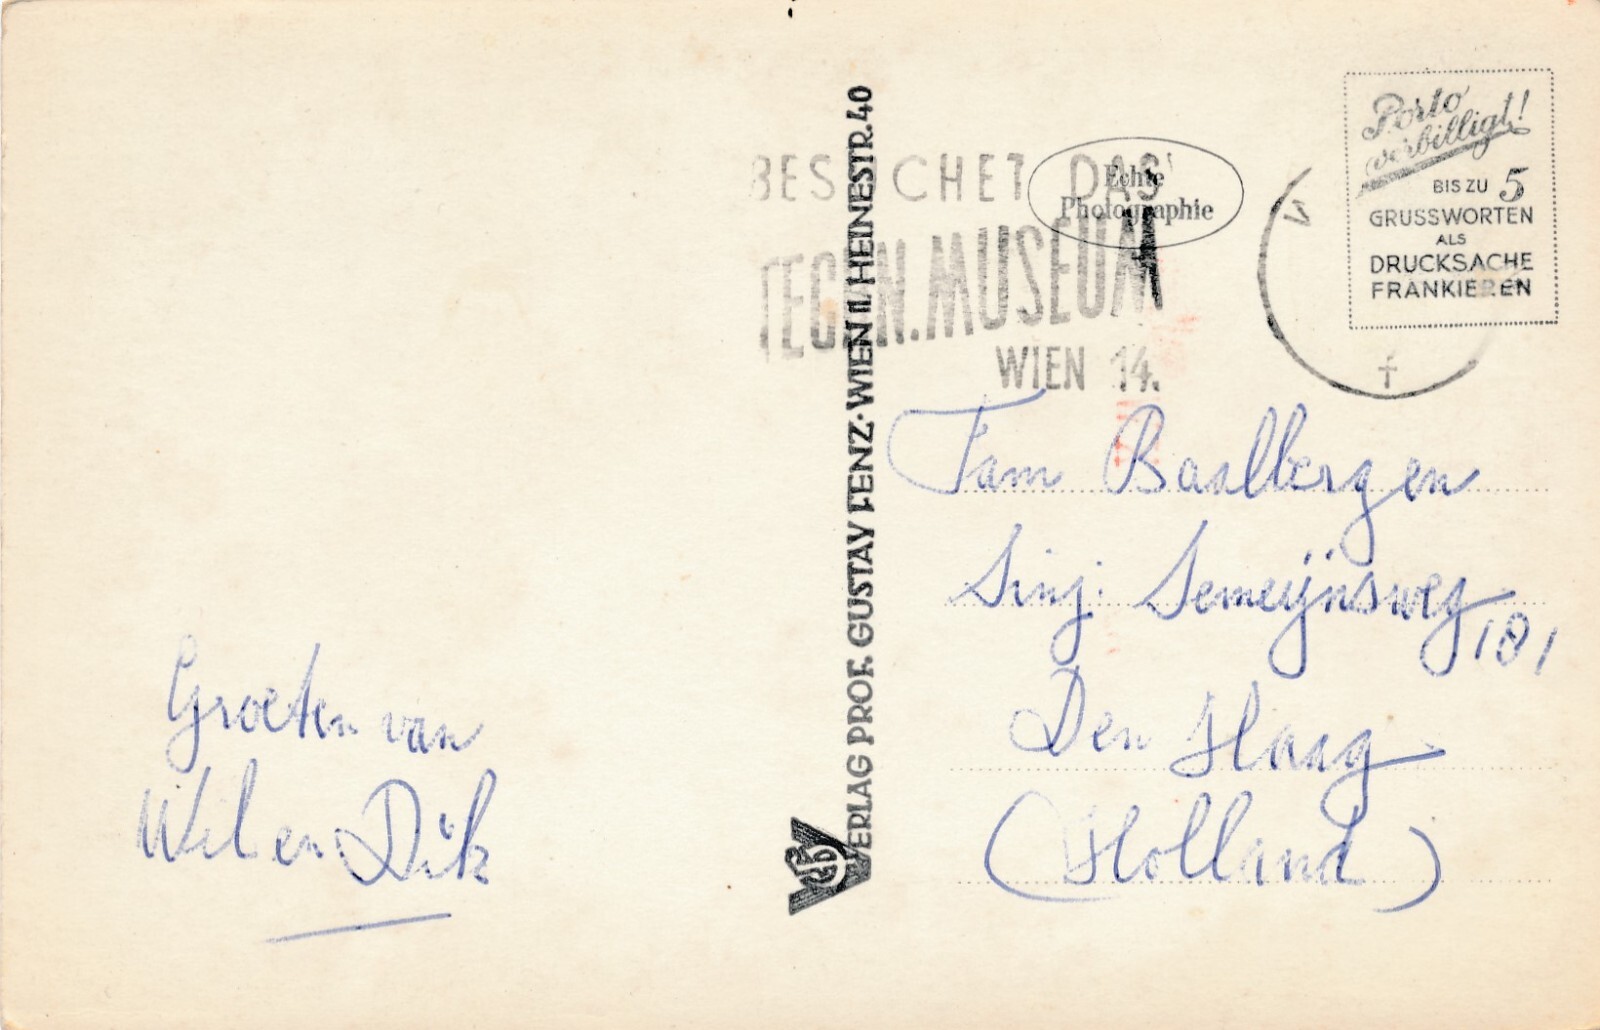 Porto
verbilligt!
BIS ZU 5
GRUSSWORTEN
ALS
DRUCKSACHE
FRANKIEREN
Echte
Photographie
BESUCHET DAS
TECHN. MUSEUM
WIEN 14.
VERLAG PROF. GUSTAV FENZ · WIEN II/HEINESTR. 40
Groeten van
Wil en Dik
Fam Baalbergen
Sinj: Semeijnsweg
181
Den Haag
(Holland)